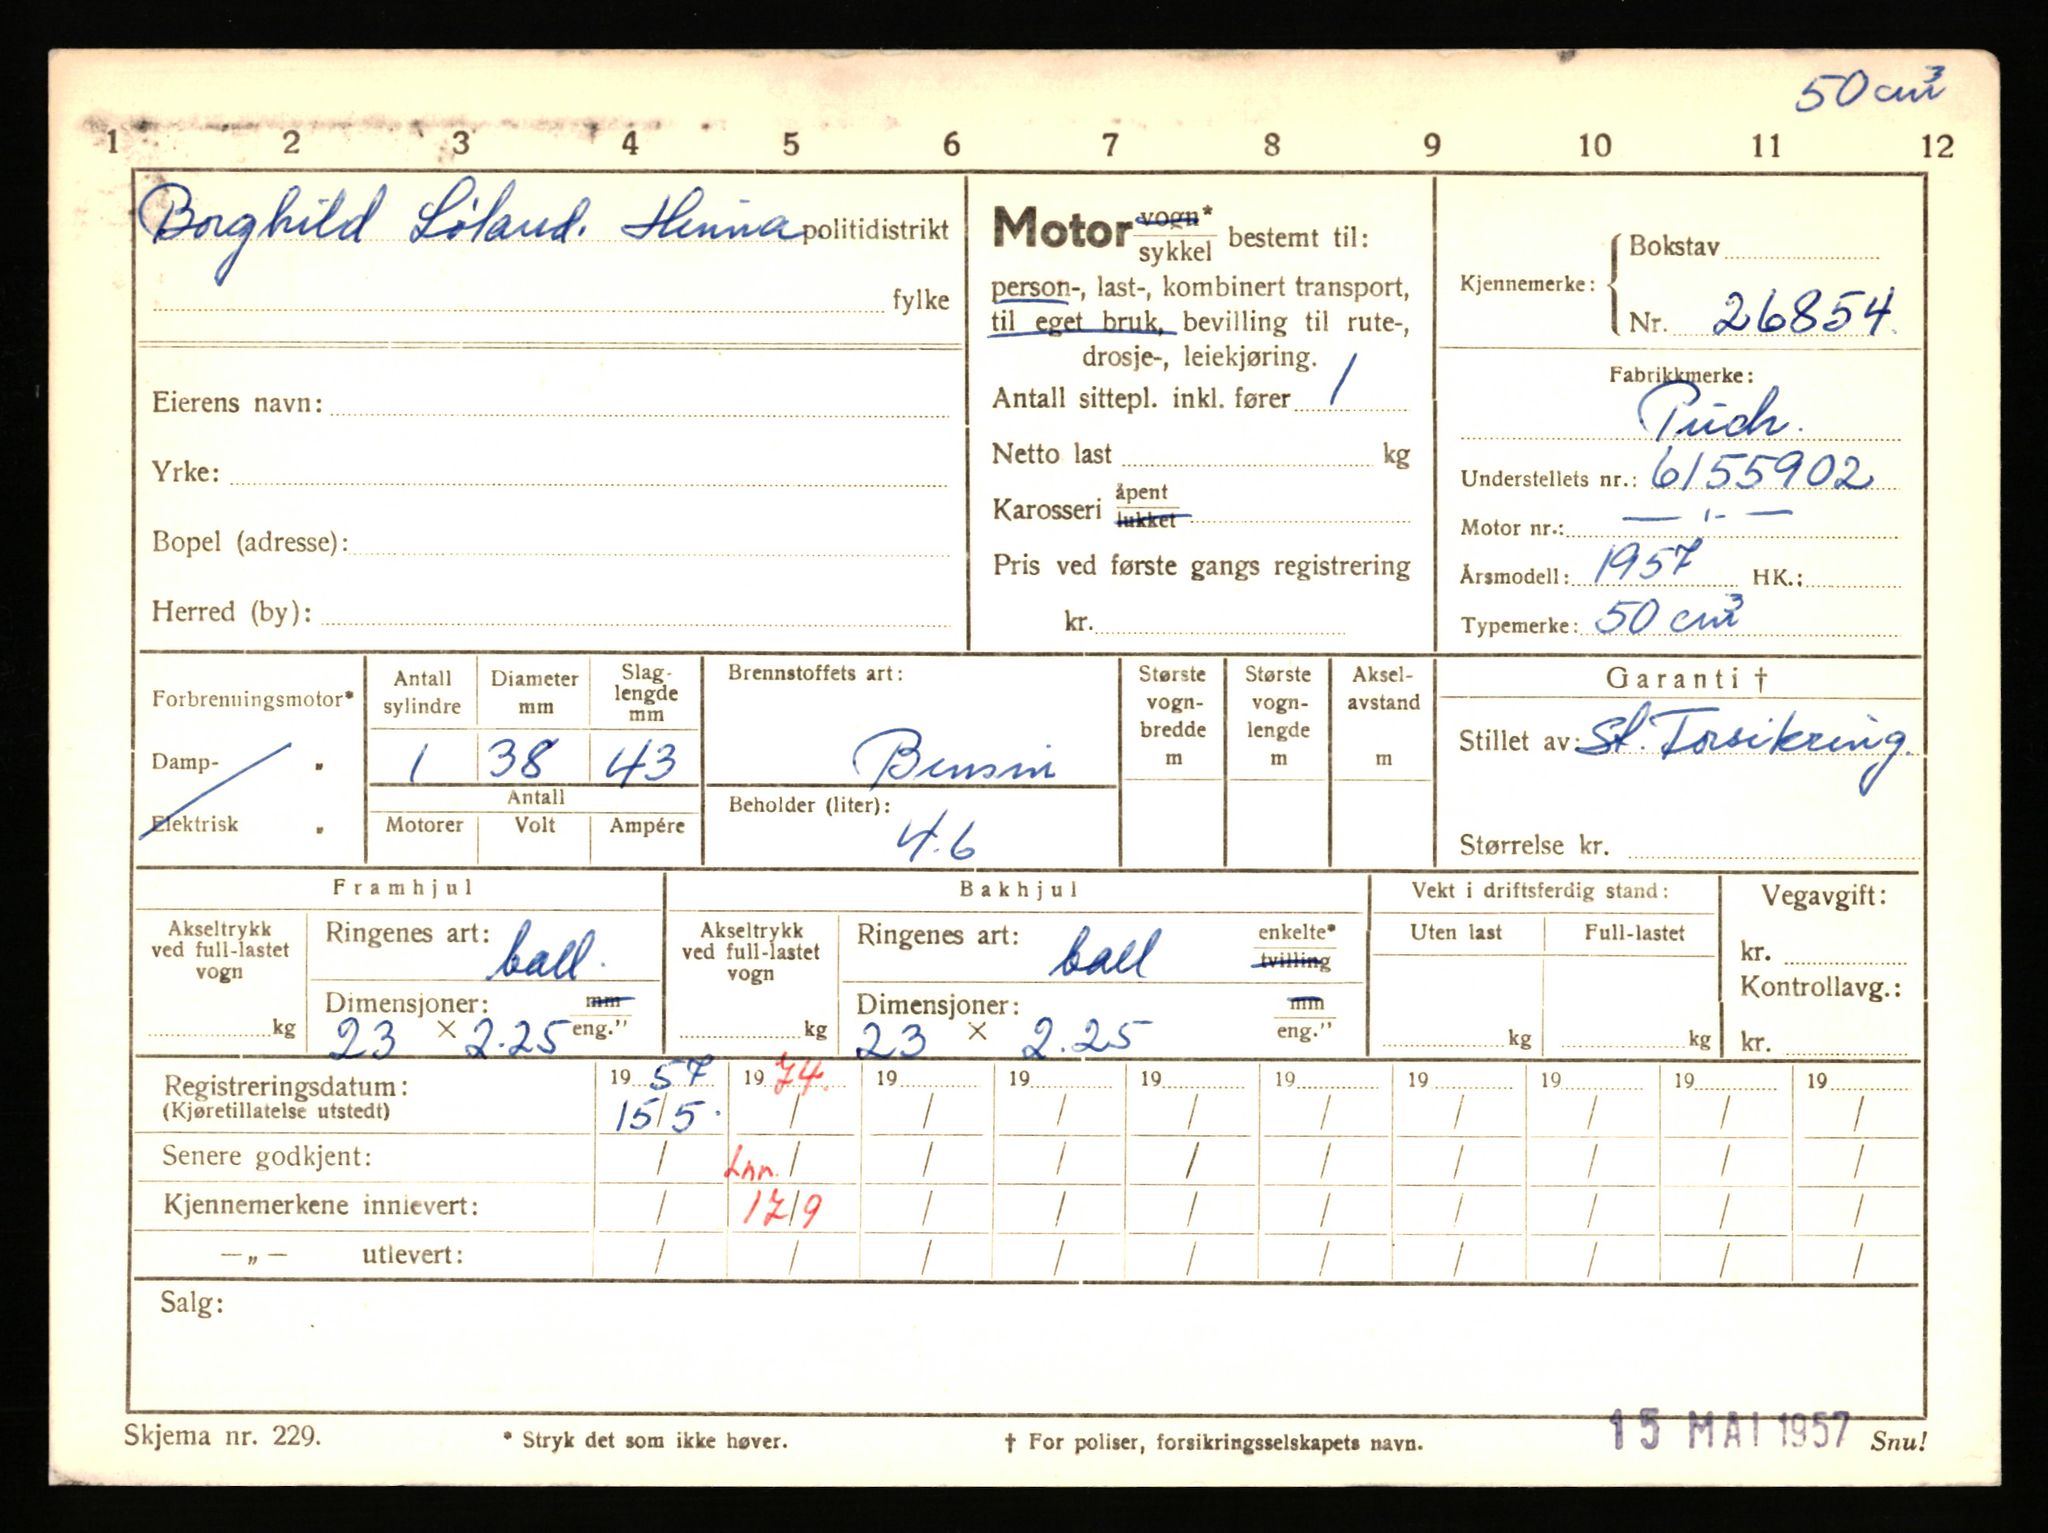 50 cm³
1 2 3 4 5 6 7 8 9 10 11 12
Borghild Löland. Hinna politidistrikt
fylke
Eierens navn:
Yrke:
Bopel (adresse):
Herred (by):
Motor vogn* / sykkel bestemt til:
person-, last-, kombinert transport,
til eget bruk, bevilling til rute-,
drosje-, leiekjøring.
Antall sittepl. inkl. fører 1
Netto last kg
Karosseri åpent / lukket
Pris ved første gangs registrering
kr.
Kjennemerke: Bokstav
Nr. 26854.
Fabrikkmerke:
Puch.
Understellets nr.: 6155902
Motor nr.: — " —
Årsmodell: 1957 HK.:
Typemerke: 50 cm³
Forbrenningsmotor*
Damp- „
Elektrisk „
Antall sylindre
1
Diameter mm
38
Slaglengde mm
43
Antall
Motorer Volt Ampére
Brennstoffets art:
Bensin
Beholder (liter):
4.6
Største vognbredde m
Største vognlengde m
Akselavstand m
Garanti †
Stillet av: St. Forsikring.
Størrelse kr.
Framhjul
Akseltrykk ved full-lastet vogn
kg
Ringenes art: ball.
Dimensjoner: mm / eng."
23 × 2.25
Bakhjul
Akseltrykk ved full-lastet vogn
kg
Ringenes art: ball enkelte* / tvilling
Dimensjoner: mm / eng."
23 × 2.25
Vekt i driftsferdig stand:
Uten last Full-lastet
kg kg
Vegavgift:
kr.
Kontrollavg.:
kr.
Registreringsdatum: 19 57 19 74. 19 19 19 19 19 19 19 19
(Kjøretillatelse utstedt) 15/5. / / / / / / / / /
Senere godkjent: / Inn. / / / / / / / / /
Kjennemerkene innlevert: / 17/9 / / / / / / / /
— „ — utlevert: / / / / / / / / / /
Salg:
Skjema nr. 229. * Stryk det som ikke høver. † For poliser, forsikringsselskapets navn. 15 MAI 1957 Snu!